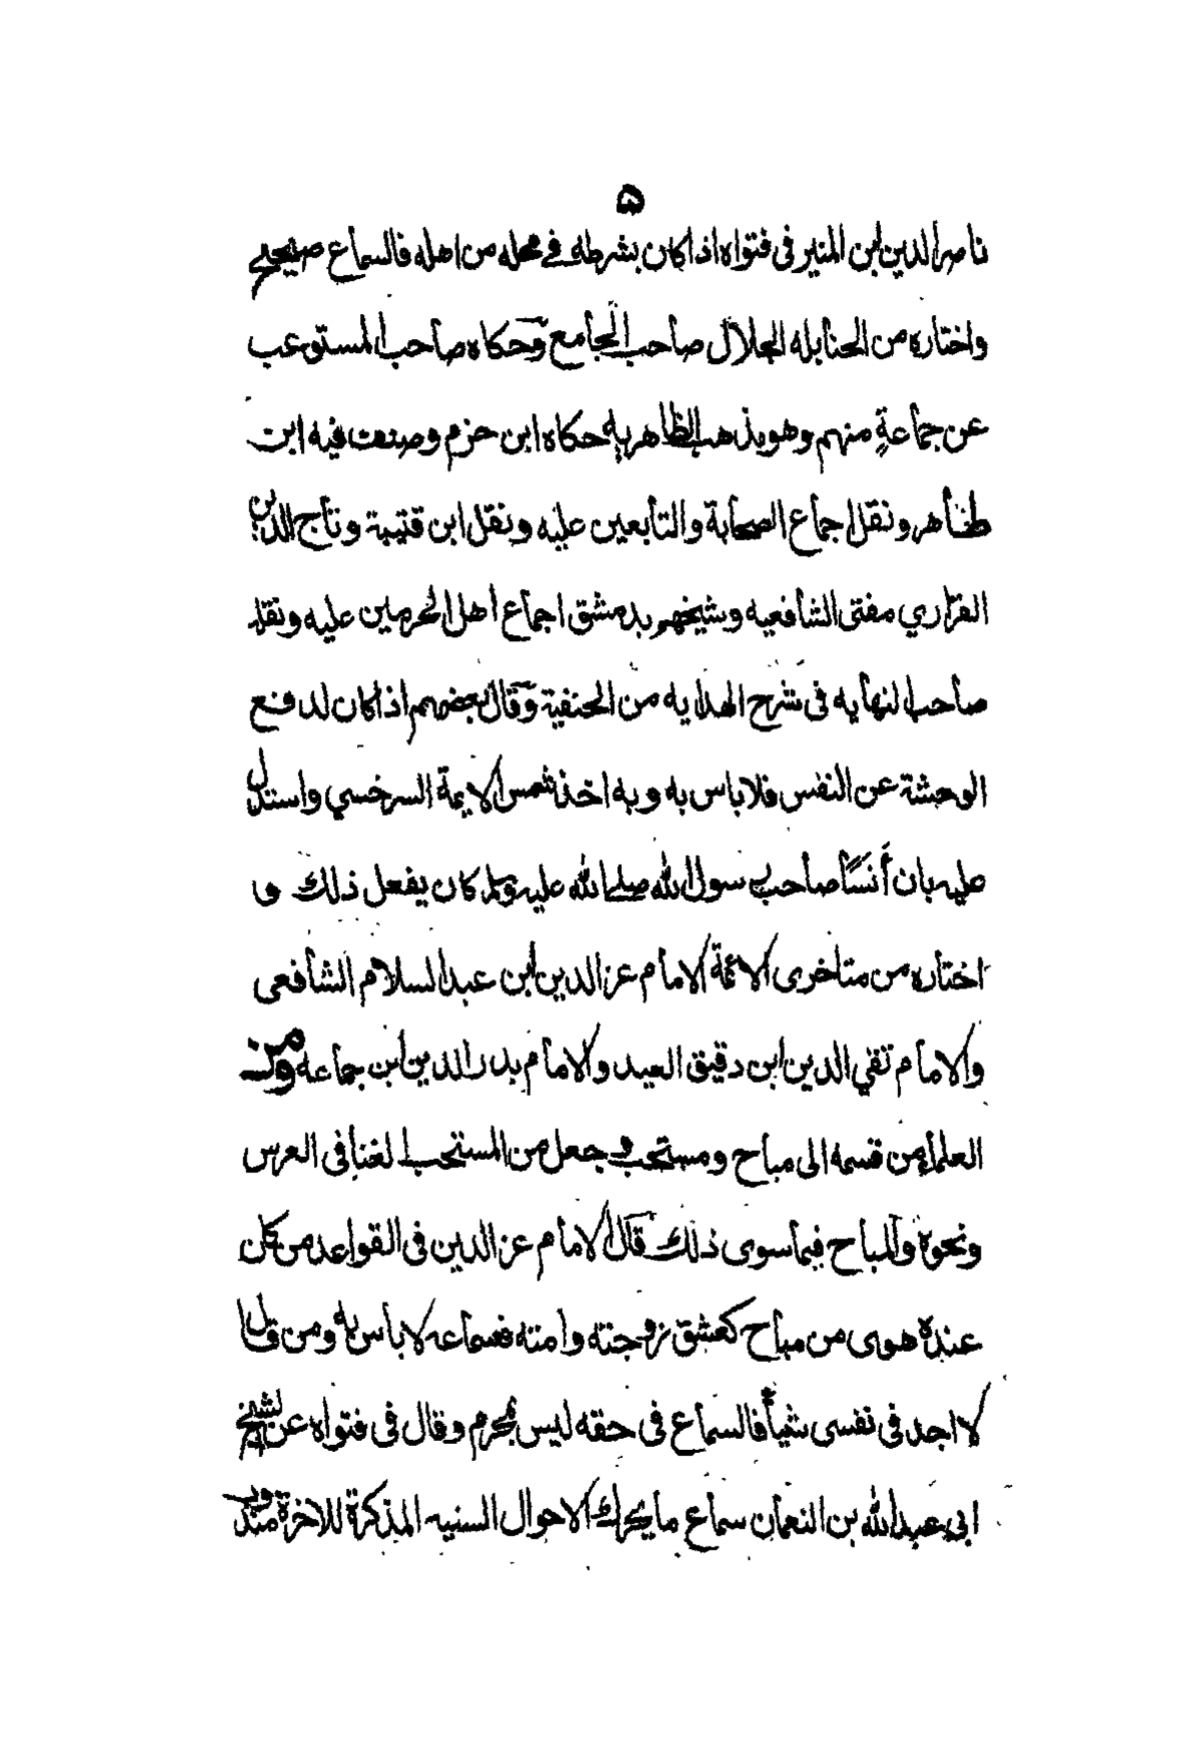 ۵
ناصر الدين ابن المنير فى فتواه اذا كان بشرطه فے محله من اهله فالسماع صحيح
واختاره من الحنابله الجلال صاحب الجامع وحكاه صاحب المستوعب
عن جماعةٍ منهم وهو مذهب الظاهريه حكاه ابن حزم وصنف فيه ابن
طاهر ونقل اجماع الصحابة والتابعين عليه ونقل ابن قتيبة وتاج الدين
الفزاري مفتى الشافعيه وشيخهم بدمشق اجماع اهل الحرمين عليه ونقل
صاحب النهايه فى شرح الهدايه من الحنفية وقال بعضهم اذا كان لدفع
الوحشة عن النفس فلا باس به وبه اخذ شمس الايمة السرخسي واستدل
عليه بان أنسًا صاحب رسول الله صلے الله عليه وسلم كان يفعل ذلك و
اختاره من متاخرى الائمة الامام عز الدين ابن عبد السلام الشافعى
والامام تقي الدين ابن دقيق العيد والامام بدر الدين ابن جماعه ومن
العلماء من قسمه الى مباح ومستحب و جعل من المستحب الغنا فى العرس
ونحوه والمباح فيما سوى ذلك قال الامام عز الدين فى القواعد من كان
عنده هوى من مباح كعشق زوجته وامته فسماعه لا باس به ومن قال
لا اجد فى نفسى شيأ فالسماع فى حقه ليس بمحرم وقال فى فتواه عن الشيخ
ابى عبد الله بن النعمان سماع ما يحرك الاحوال السنيه المذكرة للاخرة مندوب